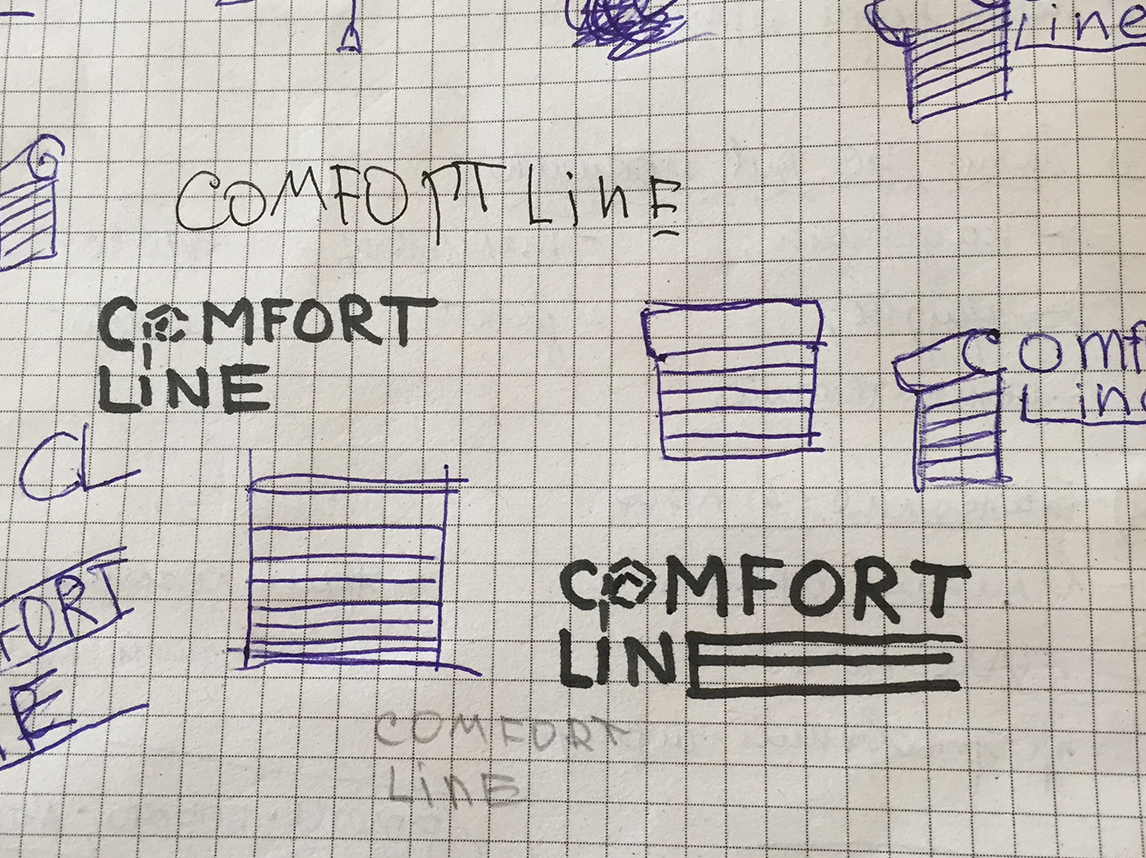 Line
COMFORT LinE
COMFORT
LINE
Comf
Line
CL
FORT
E
COMFORT
LINE
COMFORT
LinE